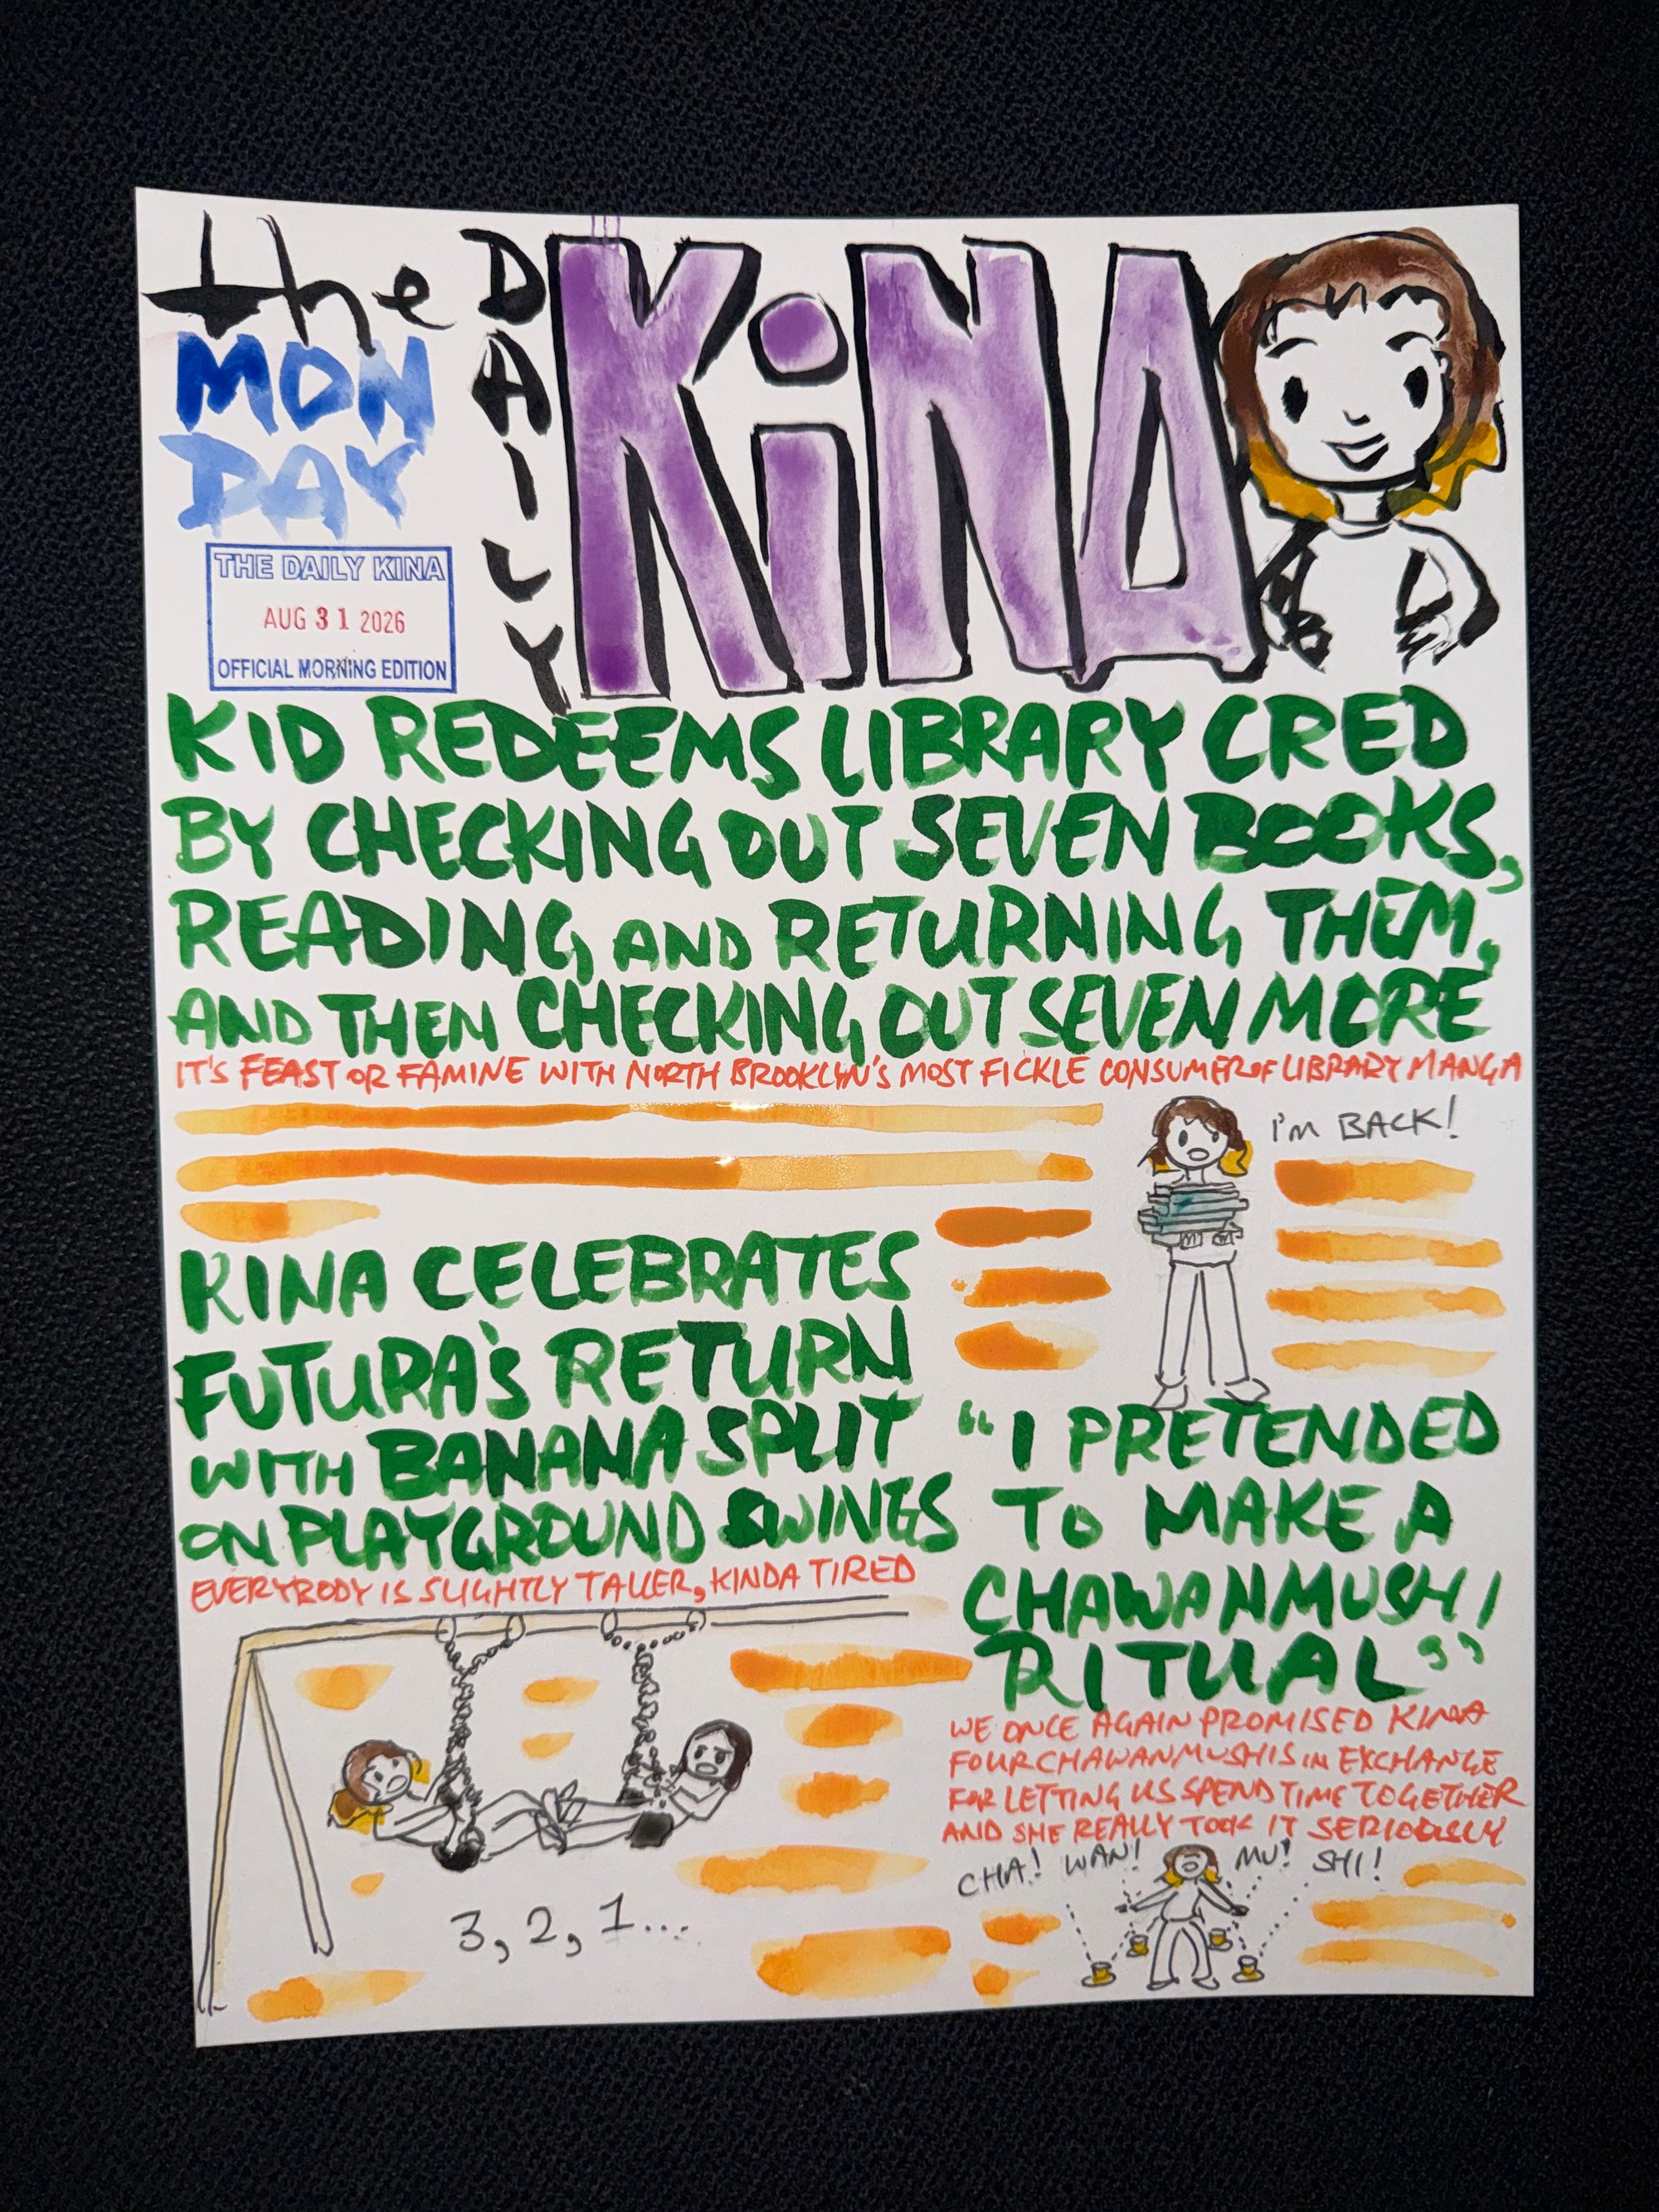 the
MON
DAY
DAILY
KiNA
THE DAILY KINA
AUG 31 2026
OFFICIAL MORNING EDITION
KID REDEEMS LIBRARY CRED
BY CHECKING OUT SEVEN BOOKS,
READING, AND RETURNING THEM,
AND THEN CHECKING OUT SEVEN MORE
IT'S FEAST OR FAMINE WITH NORTH BROOKLYN'S MOST FICKLE CONSUMER OF LIBRARY MANGA
I'M BACK!
KINA CELEBRATES
FUTURA'S RETURN
WITH BANANA SPLIT
ON PLAYGROUND SWINGS
EVERYBODY IS SLIGHTLY TALLER, KINDA TIRED
3, 2, 1...
"I PRETENDED
TO MAKE A
CHAWANMUSHI
RITUAL"
WE ONCE AGAIN PROMISED KINA
FOUR CHAWANMUSHIS IN EXCHANGE
FOR LETTING US SPEND TIME TOGETHER
AND SHE REALLY TOOK IT SERIOUSLY
CHA! WAN! MU! SHI!